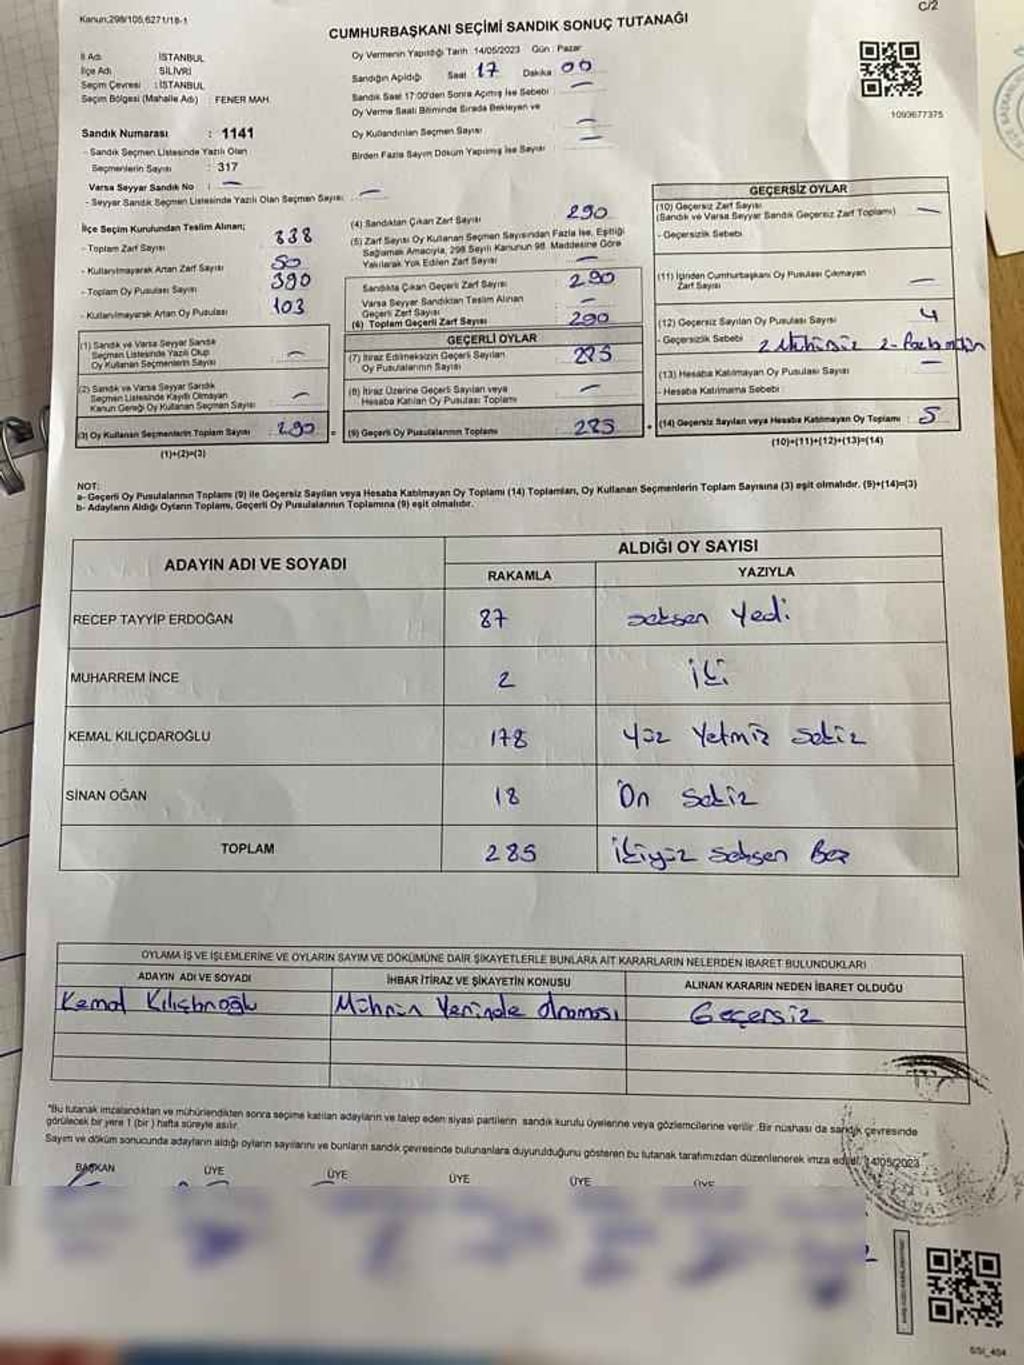 Kanun:298/105,6271/18-1
C/2
CUMHURBAŞKANI SEÇİMİ SANDIK SONUÇ TUTANAĞI
İl Adı : İSTANBUL
İlçe Adı : SİLİVRİ
Seçim Çevresi : İSTANBUL
Seçim Bölgesi (Mahalle Adı) : FENER MAH.
Sandık Numarası : 1141
- Sandık Seçmen Listesinde Yazılı Olan
Seçmenlerin Sayısı : 317
Varsa Seyyar Sandık No : —
- Seyyar Sandık Seçmen Listesinde Yazılı Olan Seçmen Sayısı: —
Oy Vermenin Yapıldığı Tarih :14/05/2023 Gün : Pazar
Sandığın Açıldığı Saat 17 Dakika 00
Sandık Saat 17:00'den Sonra Açılmış İse Sebebi : —
Oy Verme Saati Bitiminde Sırada Bekleyen ve
Oy Kullandırılan Seçmen Sayısı : —
Birden Fazla Sayım Döküm Yapılmış İse Sayısı : —
1093677375
İlçe Seçim Kurulundan Teslim Alınan;
- Toplam Zarf Sayısı : 338
- Kullanılmayarak Artan Zarf Sayısı : 50
- Toplam Oy Pusulası Sayısı : 390
- Kullanılmayarak Artan Oy Pusulası : 103
(1) Sandık ve Varsa Seyyar Sandık
Seçmen Listesinde Yazılı Olup
Oy Kullanan Seçmenlerin Sayısı : —
(2) Sandık ve Varsa Seyyar Sandık
Seçmen Listesinde Kayıtlı Olmayan
Kanun Gereği Oy Kullanan Seçmen Sayısı : —
(3) Oy Kullanan Seçmenlerin Toplam Sayısı : 290 =
(1)+(2)=(3)
(4) Sandıktan Çıkan Zarf Sayısı : 290
(5) Zarf Sayısı Oy Kullanan Seçmen Sayısından Fazla İse, Eşitliği
Sağlamak Amacıyla, 298 Sayılı Kanunun 98. Maddesine Göre
Yakılarak Yok Edilen Zarf Sayısı : —
Sandıkta Çıkan Geçerli Zarf Sayısı : 290
Varsa Seyyar Sandıktan Teslim Alınan
Geçerli Zarf Sayısı : —
(6) Toplam Geçerli Zarf Sayısı : 290
GEÇERLİ OYLAR
(7) İtiraz Edilmeksizin Geçerli Sayılan
Oy Pusulalarının Sayısı : 285
(8) İtiraz Üzerine Geçerli Sayılan veya
Hesaba Katılan Oy Pusulası Toplamı : —
(9) Geçerli Oy Pusulalarının Toplamı : 285 +
GEÇERSİZ OYLAR
(10) Geçersiz Zarf Sayısı
(Sandık ve Varsa Seyyar Sandık Geçersiz Zarf Toplamı) : —
- Geçersizlik Sebebi :
(11) İçinden Cumhurbaşkanı Oy Pusulası Çıkmayan
Zarf Sayısı : —
(12) Geçersiz Sayılan Oy Pusulası Sayısı : 4
- Geçersizlik Sebebi : 2 Mühürsüz 2-
(13) Hesaba Katılmayan Oy Pusulası Sayısı : —
- Hesaba Katılmama Sebebi :
(14) Geçersiz Sayılan veya Hesaba Katılmayan Oy Toplamı : 5
(10)+(11)+(12)+(13)=(14)
NOT:
a- Geçerli Oy Pusulalarının Toplamı (9) ile Geçersiz Sayılan veya Hesaba Katılmayan Oy Toplamı (14) Toplamları, Oy Kullanan Seçmenlerin Toplam Sayısına (3) eşit olmalıdır. (9)+(14)=(3)
b- Adayların Aldığı Oyların Toplamı, Geçerli Oy Pusulalarının Toplamına (9) eşit olmalıdır.
ADAYIN ADI VE SOYADI
ALDIĞI OY SAYISI
RAKAMLA YAZIYLA
RECEP TAYYİP ERDOĞAN 87 seksen Yedi
MUHARREM İNCE 2 İki
KEMAL KILIÇDAROĞLU 178 Yüz Yetmiş Sekiz
SİNAN OĞAN 18 On Sekiz
TOPLAM 285 İkiyüz seksen Beş
OYLAMA İŞ VE İŞLEMLERİNE VE OYLARIN SAYIM VE DÖKÜMÜNE DAİR ŞİKAYETLERLE BUNLARA AİT KARARLARIN NELERDEN İBARET BULUNDUKLARI
ADAYIN ADI VE SOYADI İHBAR İTİRAZ VE ŞİKAYETİN KONUSU ALINAN KARARIN NEDEN İBARET OLDUĞU
Kemal Kılıçdaroğlu Mührün Yerinde olmaması Geçersiz
*Bu tutanak imzalandıktan ve mühürlendikten sonra seçime katılan adayların ve talep eden siyasi partilerin sandık kurulu üyelerine veya gözlemcilerine verilir .Bir nüshası da sandık çevresinde
görülecek bir yere 1 (bir) hafta süreyle asılır.
Sayım ve döküm sonucunda adayların aldığı oyların sayılarını ve bunların sandık çevresinde bulunanlara duyurulduğunu gösteren bu tutanak tarafımızdan düzenlenerek imza edildi. 14/05/2023
BAŞKAN ÜYE ÜYE ÜYE ÜYE ÜYE
SSI_404